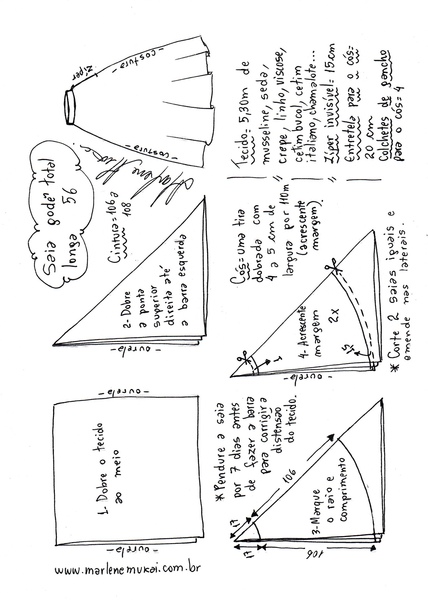 Saia godê total
longa 56
Cintura=106 a
108
costura
zíper
costura
Tecido: 5,30m de
musseline, seda,
crepe, linho, viscose,
cetim bucol, cetim
italiano, chamalote...
Zíper invisível=15cm
Entretela para o cós=
20 cm
Colchetes de gancho
para o cós=4
1- Dobre o tecido
ao meio
ourela
ourela
2- Dobre
a ponta
superior
direita até
a barra esquerda
ourela
Cós=uma tira
dobrada com
4 a 5 cm de
largura por 110m
(acrescente
margem).
* Pendure a saia
por 7 dias antes
de fazer a barra
para corrigir a
distensão
do tecido.
3-Marque
o raio e
comprimento
17
106
17
106
4- Acrescente
margem
2x
ourela
1
1,5
* Corte 2 saias iguais e
emende nas laterais.
www.marlenemukai.com.br